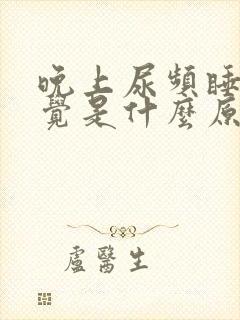 晚上尿頻睡
覺是什麼原
盧醫生